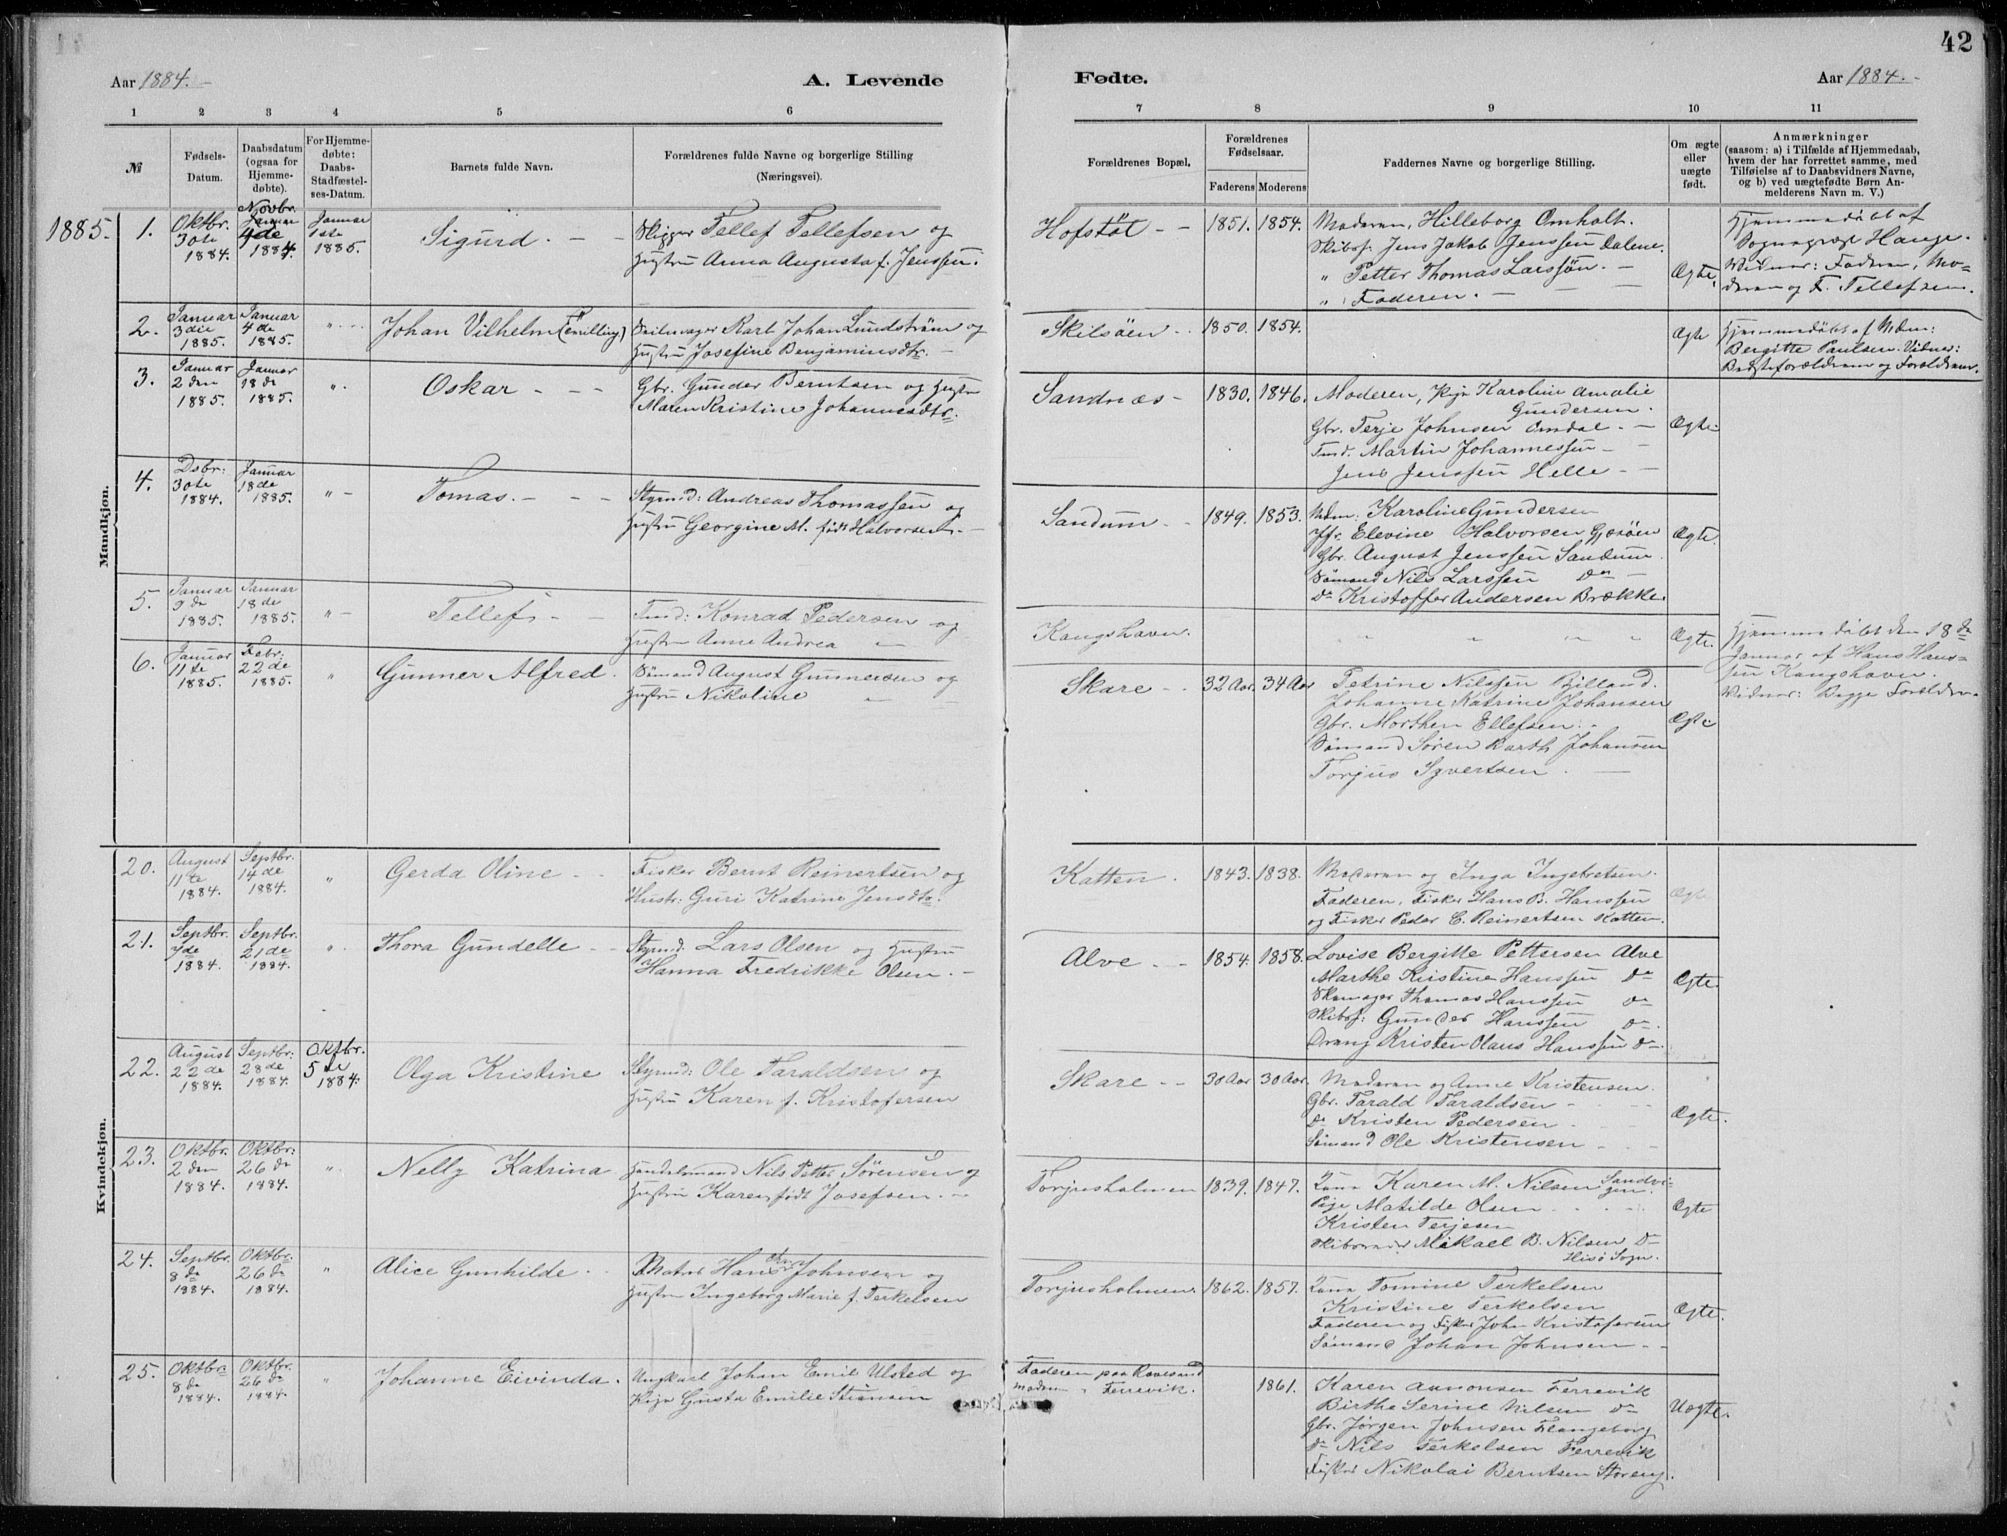 42
Aar 1884.
A. Levende
Fødte.
Aar 1884.
1 2 3 4 5 6 7 8 9 10 11
№
Fødsels-
Datum.
Daabsdatum
(ogsaa for
Hjemme-
døbte).
For Hjemme-
døbte:
Daabs-
Stadfæstel-
ses-Datum.
Barnets fulde Navn.
Forældrenes fulde Navne og borgerlige Stilling
(Næringsvei).
Forældrenes Bopæl.
Forældrenes
Fødselsaar.
Faderens Moderens
Faddernes Navne og borgerlige Stilling.
Om ægte
eller
uægte
født.
Anmærkninger
(saasom: a) i Tilfælde af Hjemmedaab,
hvem der har forrettet samme, med
Tilføielse af to Daabsvidners Navne,
og b) ved uægtefødte Børn An-
melderens Navn m. V.)
Mandkjøn.
1885.
1.
Oktbr.
30te
1884.
Novbr.
1884.
Januar
1ste
1885.
Sigurd.
Skipper Tellef Tellefsen og
Hustru Anna Augusta f. Jenssen.
Hofstøt
1851. 1854.
Moderen, Hilleborg Omholt.
Skibsf. Jens Jakob Jenssen Dalene.
" Petter Thomas Larssøn.
" Faderen.
Ægte.
Hjemmedøbt af
Sognepræst Hauge.
Widner: Faderen, Mo-
deren og F. Tellefsen.
2.
Januar
3die
1885.
Januar
4de
1885.
Johan Vilhelm (Tvilling)
Karl Johan Lundstrøm og
Hustru Josefine Benjaminsdtr.
Skilsøen
1850. 1854.
Ægte
Hjemmedøbt af Mdm:
Bergitte Paulsen. Vidner:
Bedsteforældrene og Forældrene.
3.
Januar
2den
1885.
Januar
18de
1885.
Oskar
Gbr. Gunder Berntsen og Hustru
Maren Kristine Johannesdtr.
Sandnæs
1830. 1846.
Moderen, Pige Karoline Amalie
Gundersen.
Gbr. Terje Johnsen Omdal.
Tmd. Martin Johannessen
Jens Jenssen Helle
Ægte
4.
Dsbr:
30te
1884.
Januar
18de
1885.
Tomas.
Styrmd: Andreas Thomassen og
Hustru Georgine M. født Halvorsen
Sandum
1849. 1853.
Mdm. Karoline Gundersen
Jfr. Elevine Halvorsen Gjesøen
Gbr. August Jenssen Sandum.
Sømand Nils Larssen Do
Do Kristoffer Andersen Brække.
Ægte.
5.
Januar
9de
1885.
Januar
18de
1885.
Tellef
Tmd: Konrad Pedersen og
Hustru Anne Andrea "
Kongshavn.
Ægte.
Hjemmedøbt den 18de
Januar af Hans Hans-
sen Kongshavn.
Widner: Begge Forældre.
6.
Januar
11te
1885.
Febr.
22de
1885.
Gunner Alfred.
Sømand August Gunnersen og
Hustru Nikoline "
Skare
32 Aar. 34 Aar
Petrine Nilssen Bjelland.
Johanne Katrine Johansen
Gbr. Morthen Ellefsen.
Sømand Søren Barth Johansen
Torjus Syvertsen.
Ægte
Kvindekjøn.
20.
August
11te
1884.
Septbr.
14de
1884.
Gerda Oline
Fisker Bernt Reinertsen og
Hustr: Guri Katrine Jensdtr.
Katten.
1843. 1838.
Moderen og Inga Ingebretsen.
Faderen, Fisker Hans B. Hanssen
og Fisker Peder C. Reinertsen Katten.
Ægte
21.
Septbr.
7de
1884.
Septbr.
21de
1884.
Thora Gundelle
Styrmd. Lars Olsen og Hustru
Hanna Fredrikke Olsen.
Alve
1854. 1858.
Lovise Bergitte Pettersen Alve
Marthe Kristine Hanssen Do
Skomager Thomas Hanssen Do
Skibsf: Gunder Hanssen Do
Dreng Kristen Olaus Hanssen Do
Ægte.
22.
August
22de
1884.
Septbr:
28de
1884.
Oktbr.
5te
1884.
Olga Kristine
Styrmd: Ole Taraldsen og
Hustru Karen f. Kristofersen
Skare
30 Aar 30 Aar.
Moderen og Anne Kristensen.
Gbr. Tarald Taraldsen
Do Kristen Pedersen
Sømand Ole Kristensen
Ægte.
23.
Oktbr.
2den
1884.
Oktbr.
26de
1884.
Nelly Katrina
Handelsmand Nils Petter Sørensen og
Hustru Karen, født Josefsen.
Torjusholmen
1839. 1847.
Karen M. Nilsen Sandvi-
gen.
Pige Matilde Olsen
Kristen Terjesen
Mikael B. Nilsen Do
Hisø Sogn.
Ægte
24.
Septbr.
8de
1884.
Oktbr.
26de
1884.
Alice Gunhilde.
Matros Hans Johnsen og
Hustru Ingeborg Marie f. Terkelsen
Torjusholmen.
1862. 1857.
Tomine Terkelsen
Kristine Terkelsen
Faderen og Fisker John Kristofersen
Sømand Johan Johnsen
Ægte.
25.
Oktbr.
8de
1884.
Oktbr.
26de
1884.
Johanne Eivinda.
Ungkarl Johan Emil Ulsted og
Pige Gusta Emilie Stiansen
Faderen paa Revesand
Moderen " Færevik.
1861.
Karen Aanonsen Færevik
Birthe Serine Nilsen Do
Gbr. Jørgen Johnsen Flangeborg
Do Nils Terkelsen Færevik
Fisker Nikolai Berntsen Støreng.
Uægte.